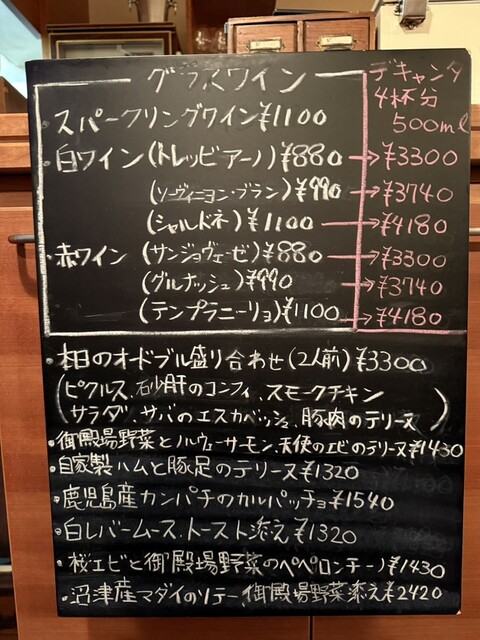 グラスワイン
デキャンタ
4杯分
500ml
・スパークリングワイン¥1100
・白ワイン(トレッビアーノ)¥880→¥3300
(ソーヴィニヨン・ブラン)¥990→¥3740
(シャルドネ)¥1100→¥4180
・赤ワイン(サンジョヴェーゼ)¥880→¥3300
(グルナッシュ)¥990→¥3740
(テンプラニーリョ)¥1100→¥4180
・本日のオードブル盛り合わせ(2人前)¥3300
(ピクルス、砂肝のコンフィ、スモークチキン
サラダ、サバのエスカベッシュ、豚肉のテリーヌ)
・御殿場野菜とノルウェーサーモン、天使のエビのテリーヌ¥1430
・自家製ハムと豚足のテリーヌ¥1320
・鹿児島産カンパチのカルパッチョ¥1540
・白レバームース、トースト添え¥1320
・桜エビと御殿場野菜のペペロンチーノ¥1430
・沼津産マダイのソテー、御殿場野菜添え¥2420